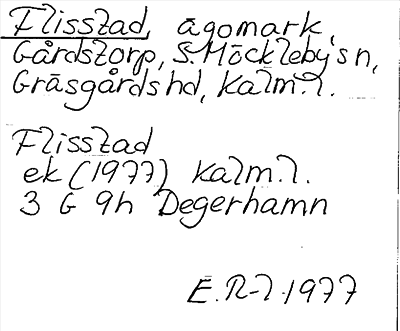 Flisstad, ägomark,
Gårdstorp, S. Möckleby sn,
Gräsgårds hd, Kalm. l.
Flisstad
ek (1977) Kalm. l.
3 G 9h Degerhamn
E. R-l 1977